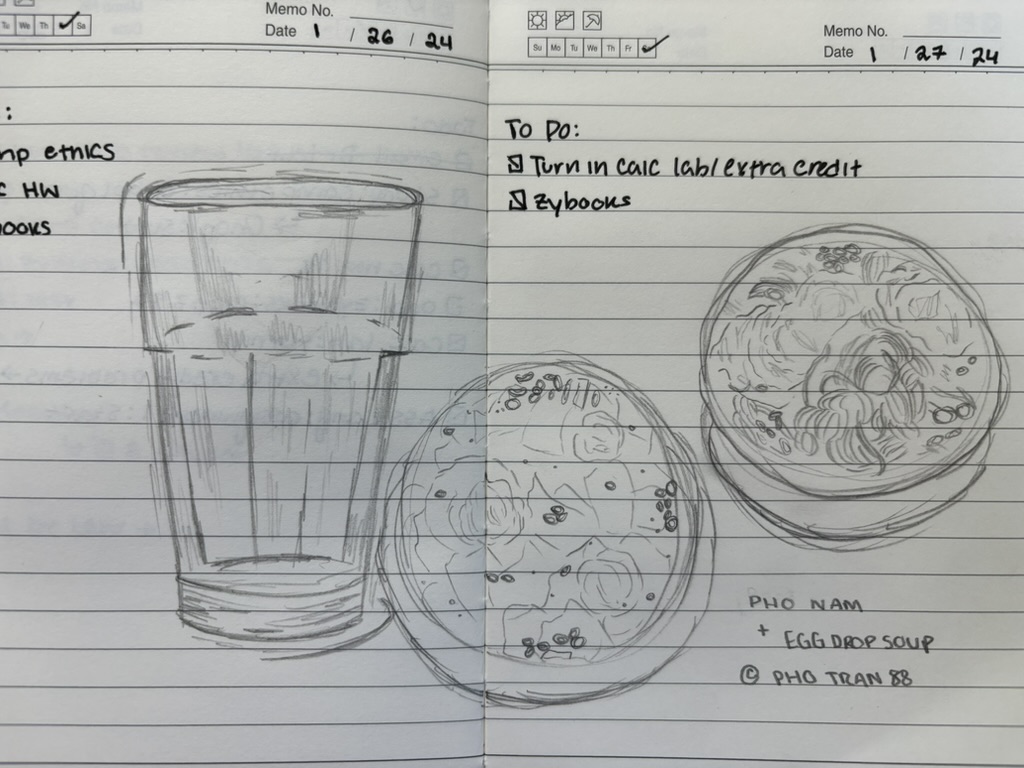 Tu We Th Sa
Memo No.
Date 1 / 26 / 24
:
mp ethics
c HW
ooks
Su Mo Tu We Th Fr
Memo No.
Date 1 / 27 / 24
To Do:
Turn in Calc lab/extra credit
Zybooks
PHO NAM
+ EGG DROP SOUP
© PHO TRAN 88